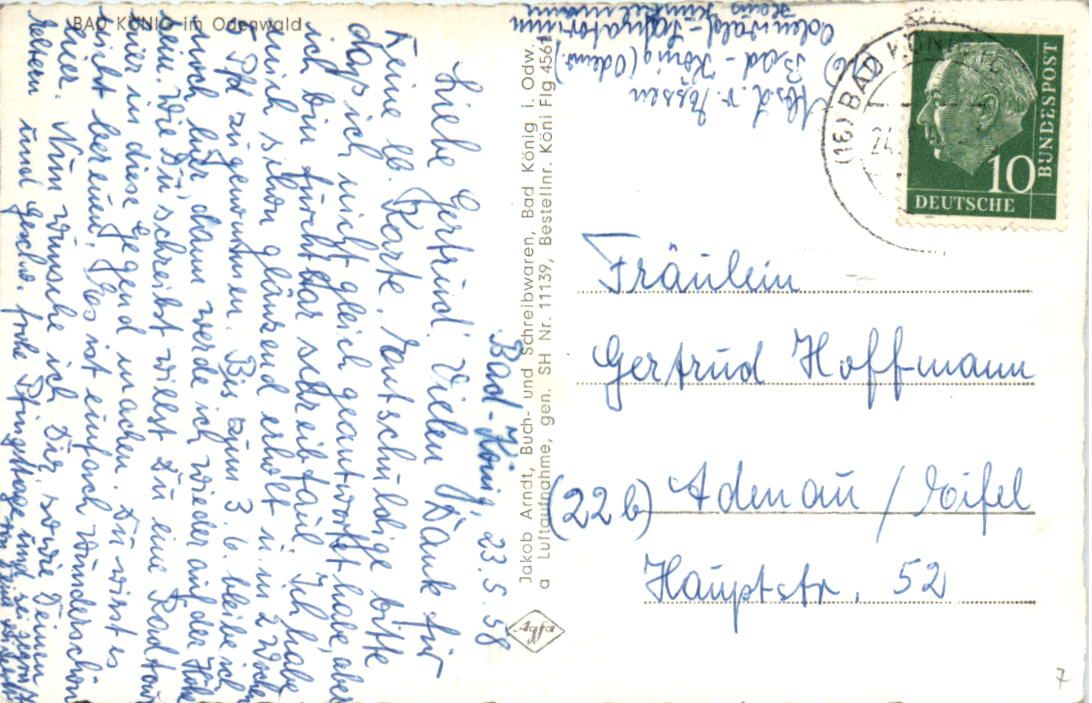 BAD KÖNIG im Odenwald
Bad-König, 23.5.58
Liebe Gertrud! Vielen Dank für
Deine lb. Karte. Entschuldige bitte
dass ich nicht gleich geantwortet habe, aber
ich bin furchtbar schreibfaul. Ich habe
mich schon glänzend erholt u. in 2 Wochen
5 Pfd zugenommen. Bis zum 3.6. bleibe ich
noch hier, dann werde ich wieder auf der Höhe
sein. Wie Du schreibst willst Du eine Radtour
hier in diese Gegend machen. Du wirst es
nicht bereuen. Es ist einfach wunderschön
hier. Nun wünsche ich Dir sowie Deinen
Eltern und Geschw. frohe Pfingsttage und sei
Jakob Arndt, Buch- und Schreibwaren, Bad König i. Odw.
a Luftaufnahme, gen. SH Nr. 11139, Bestellnr. Köni Flg 4561
afbr
Abs. d. v.
(16) Bad-König (Odenw.)
Odenwald-Sanatorium
Haus
(16) BAD KÖNIG
24.
DEUTSCHE
BUNDESPOST
10
Fräulein
Gertrud Hoffmann
(22b) Adenau / Eifel
Hauptstr. 52
7